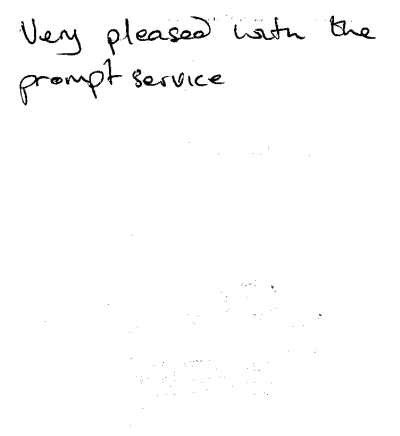 Very pleased with the
prompt service